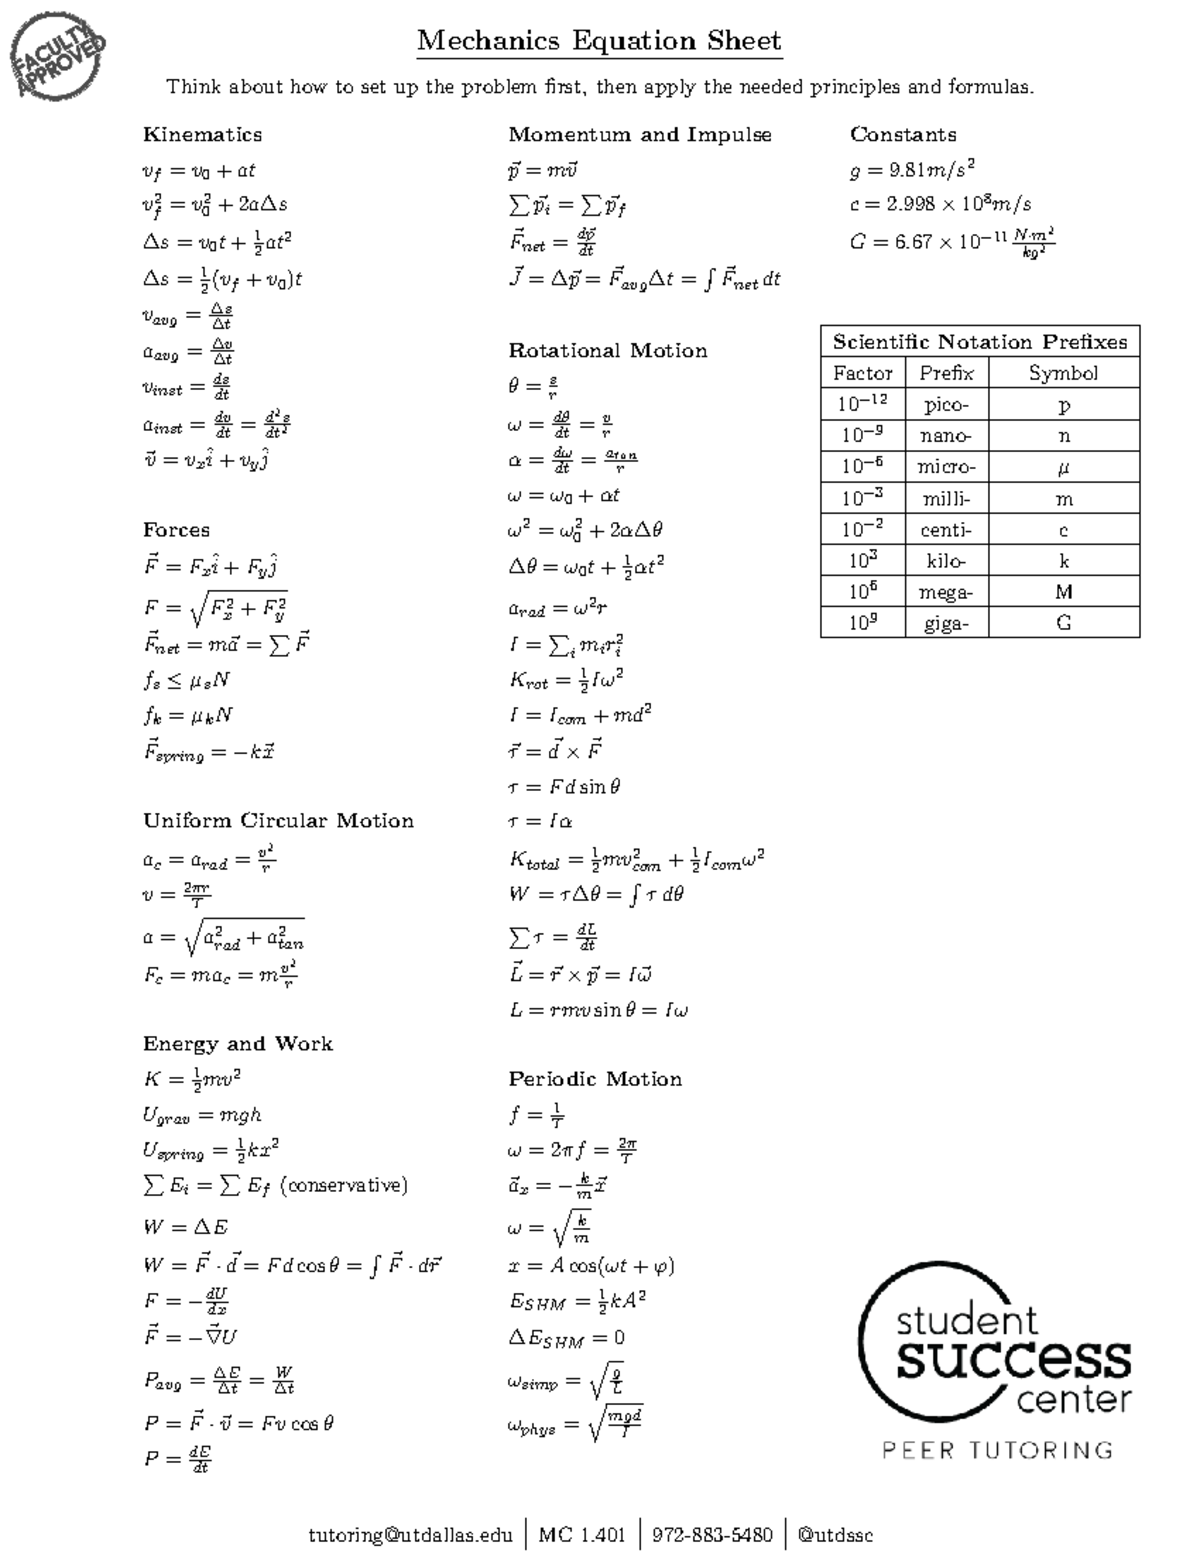 FACULTY
APPROVED
Mechanics Equation Sheet
Think about how to set up the problem first, then apply the needed principles and formulas.
Kinematics
v_f = v_0 + at
v_f^2 = v_0^2 + 2aΔs
Δs = v_0t + \frac{1}{2}at^2
Δs = \frac{1}{2}(v_f + v_0)t
v_{avg} = \frac{Δs}{Δt}
a_{avg} = \frac{Δv}{Δt}
v_{inst} = \frac{ds}{dt}
a_{inst} = \frac{dv}{dt} = \frac{d^2s}{dt^2}
\vec{v} = v_x\hat{i} + v_y\hat{j}
Forces
\vec{F} = F_x\hat{i} + F_y\hat{j}
F = \sqrt{F_x^2 + F_y^2}
\vec{F}_{net} = m\vec{a} = ∑ \vec{F}
f_s ≤ μ_sN
f_k = μ_kN
\vec{F}_{spring} = −k\vec{x}
Uniform Circular Motion
a_c = a_{rad} = \frac{v^2}{r}
v = \frac{2πr}{T}
a = \sqrt{a_{rad}^2 + a_{tan}^2}
F_c = ma_c = m\frac{v^2}{r}
Energy and Work
K = \frac{1}{2}mv^2
U_{grav} = mgh
U_{spring} = \frac{1}{2}kx^2
∑ E_i = ∑ E_f (conservative)
W = ΔE
W = \vec{F} · \vec{d} = Fd cos θ = ∫ \vec{F} · d\vec{r}
F = −\frac{dU}{dx}
\vec{F} = −\vec{∇}U
P_{avg} = \frac{ΔE}{Δt} = \frac{W}{Δt}
P = \vec{F} · \vec{v} = Fv cos θ
P = \frac{dE}{dt}
Momentum and Impulse
\vec{p} = m\vec{v}
∑ \vec{p}_i = ∑ \vec{p}_f
\vec{F}_{net} = \frac{d\vec{p}}{dt}
\vec{J} = Δ\vec{p} = \vec{F}_{avg}Δt = ∫ \vec{F}_{net} dt
Rotational Motion
θ = \frac{s}{r}
ω = \frac{dθ}{dt} = \frac{v}{r}
α = \frac{dω}{dt} = \frac{a_{tan}}{r}
ω = ω_0 + αt
ω^2 = ω_0^2 + 2αΔθ
Δθ = ω_0t + \frac{1}{2}αt^2
a_{rad} = ω^2r
I = ∑_i m_ir_i^2
K_{rot} = \frac{1}{2}Iω^2
I = I_{com} + md^2
\vec{τ} = \vec{d} × \vec{F}
τ = Fd sin θ
τ = Iα
K_{total} = \frac{1}{2}mv_{com}^2 + \frac{1}{2}I_{com}ω^2
W = τΔθ = ∫ τ dθ
∑ τ = \frac{dL}{dt}
\vec{L} = \vec{r} × \vec{p} = I\vec{ω}
L = rmv sin θ = Iω
Periodic Motion
f = \frac{1}{T}
ω = 2πf = \frac{2π}{T}
\vec{a}_x = −\frac{k}{m}\vec{x}
ω = \sqrt{\frac{k}{m}}
x = A cos(ωt + φ)
E_{SHM} = \frac{1}{2}kA^2
ΔE_{SHM} = 0
ω_{simp} = \sqrt{\frac{g}{L}}
ω_{phys} = \sqrt{\frac{mgd}{I}}
Constants
g = 9.81m/s^2
c = 2.998 × 10^8m/s
G = 6.67 × 10^{−11}\frac{N·m^2}{kg^2}
Scientific Notation Prefixes
Factor Prefix Symbol
10^{−12} pico- p
10^{−9} nano- n
10^{−6} micro- μ
10^{−3} milli- m
10^{−2} centi- c
10^3 kilo- k
10^6 mega- M
10^9 giga- G
student
success
center
PEER TUTORING
tutoring@utdallas.edu | MC 1.401 | 972-883-5480 | @utdssc